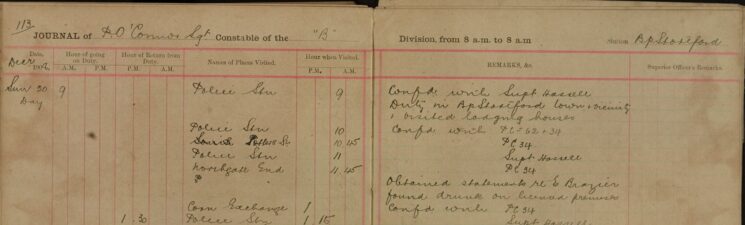 113
JOURNAL of P. O'Connor Sgt Constable of the "B" Division, from 8 a.m. to 8 a.m Station Bp Stortford
Date, Hour of going on Duty. Hour of Return from Duty. Names of Places Visited. Hour when Visited. REMARKS, &c. Superior Officer's Remarks.
Decr A.M. P.M. A.M. P.M. P.M. A.M.
Sun 30 9 Police Stn 9 Confd. with Supt Hassell
Day Duty in Bp Stortford town & vicinity
& visited lodging houses
Police Stn 10 Confd with PCs 62 & 34
Potters St 10 45 PC 34
Police Stn 11 Supt Hassell
Northgate End 11.45 PC 34
Obtained statements re E Brazier
found drunk on licensed premises
Corn Exchange 1 Confd with PC 34
1.30 Police Stn 1.15 Supt Hassell